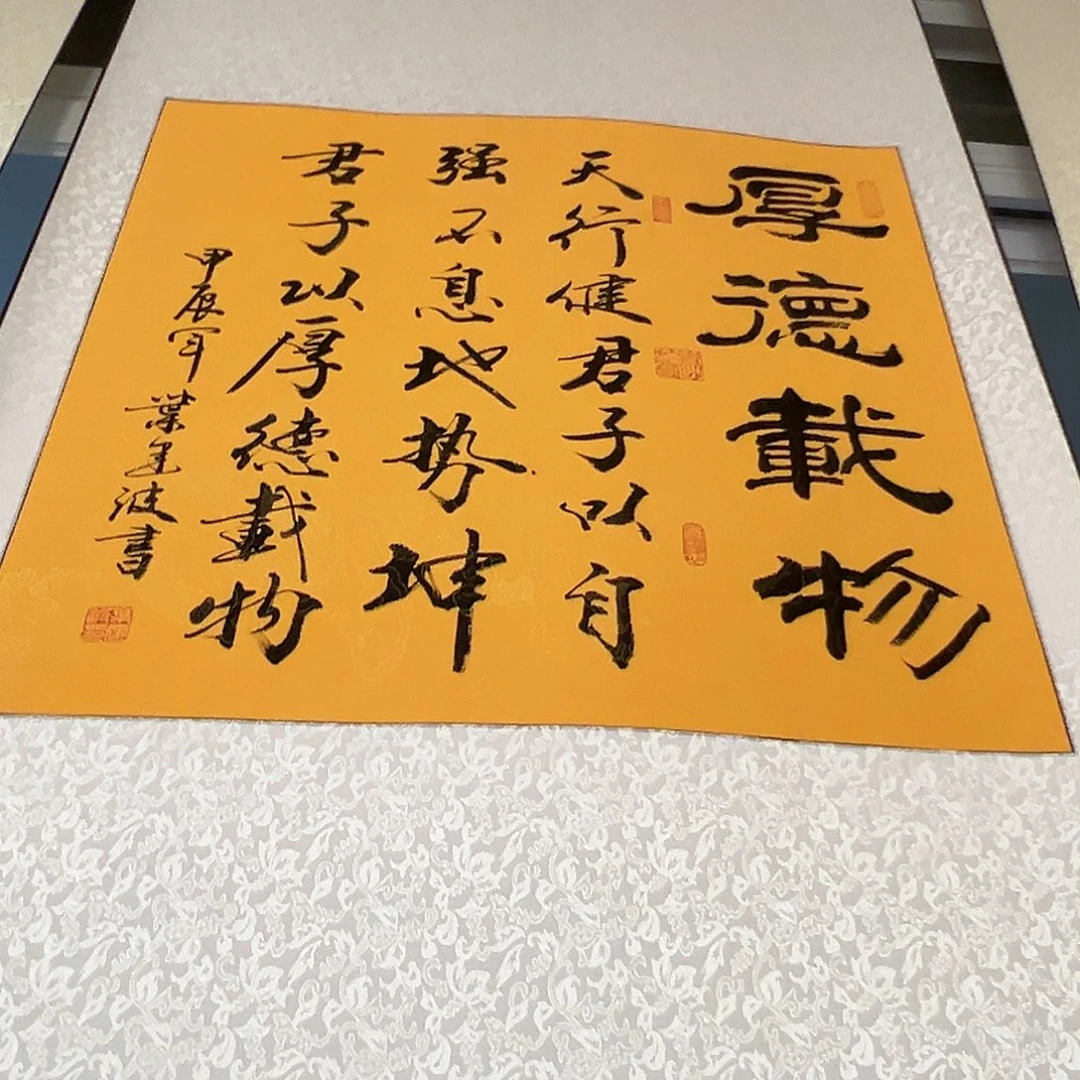 厚德載物
天行健君子以自
强不息地势坤
君子以厚德載物
甲辰年葉建波書